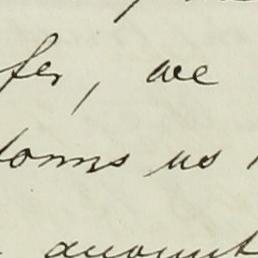 fer, we
forms us
amount